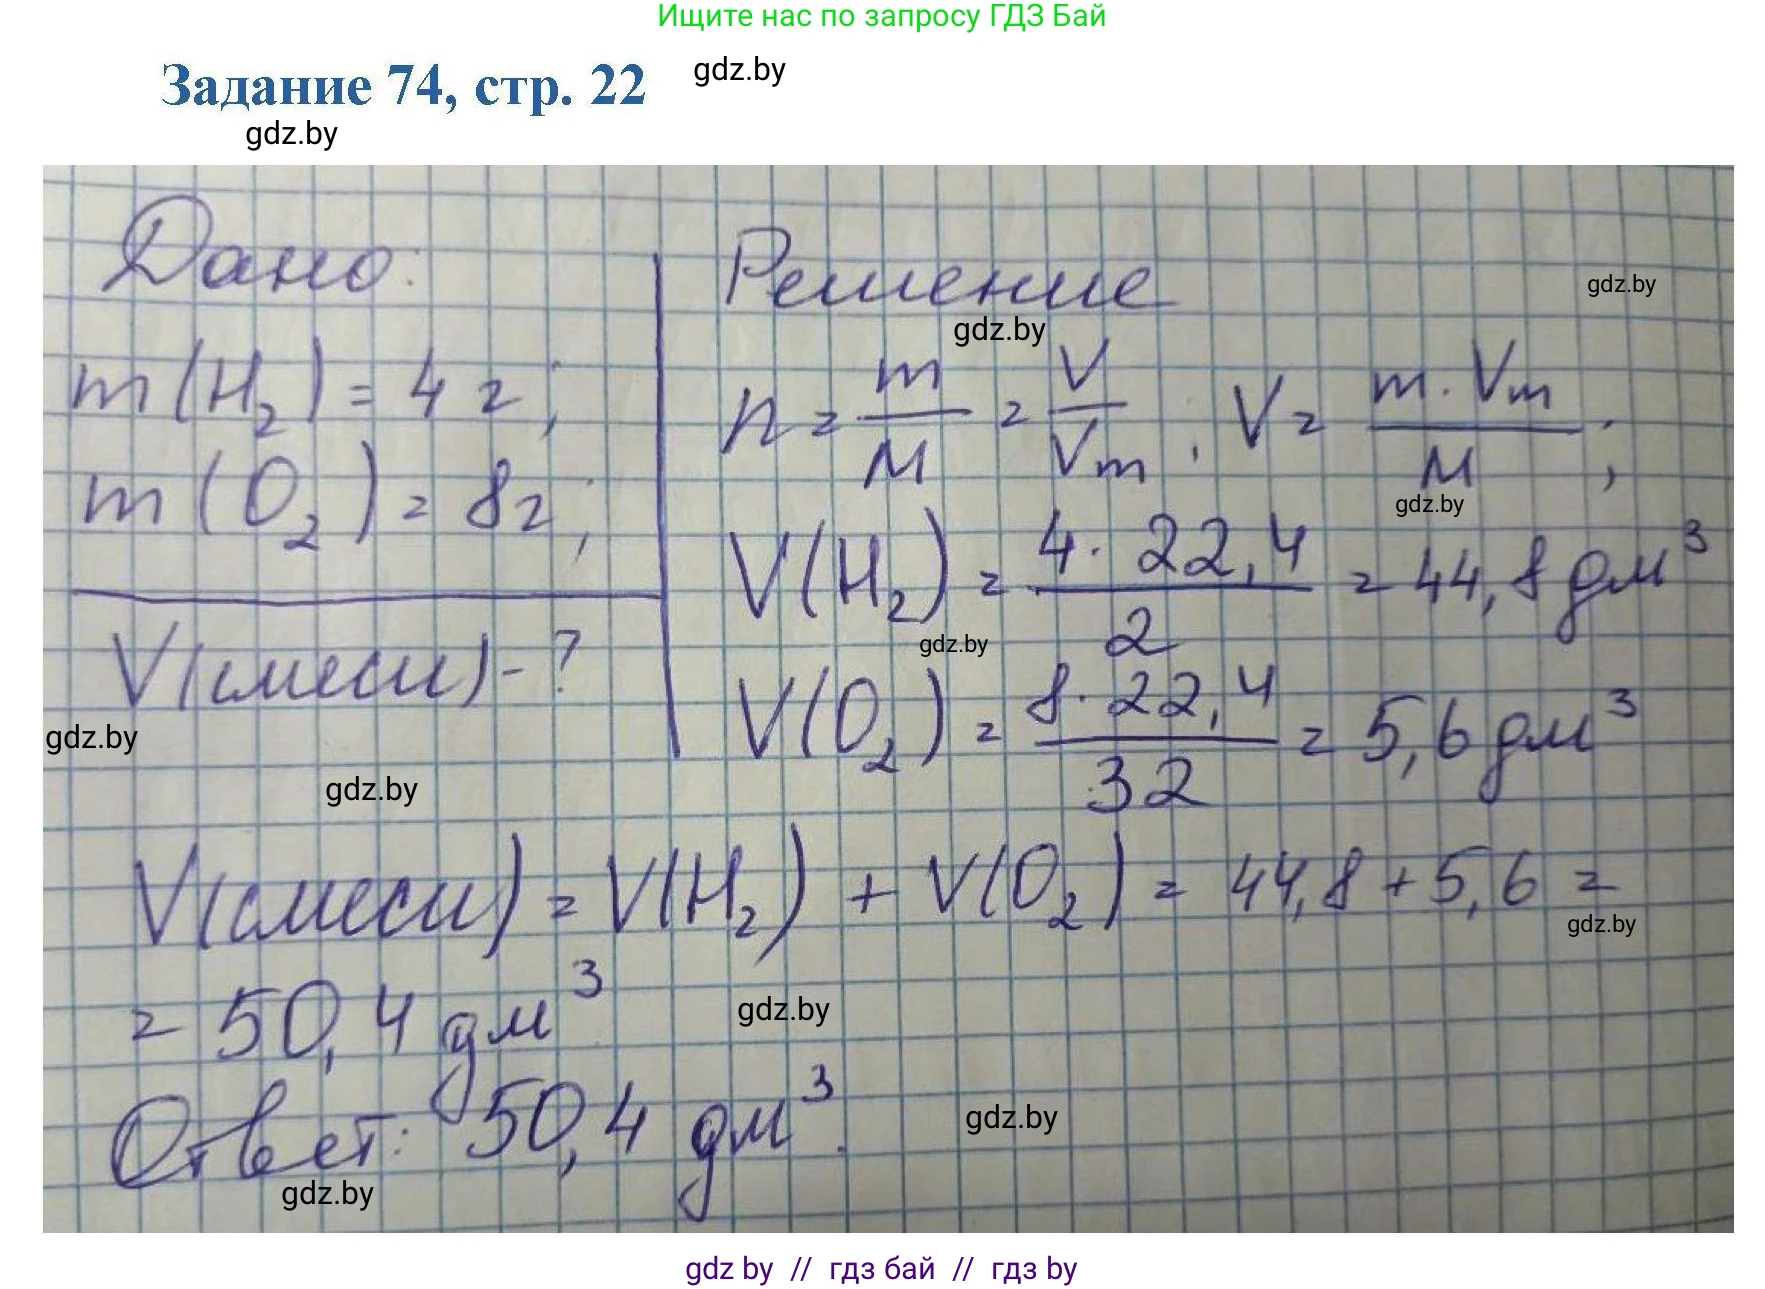 Ищите нас по запросу ГДЗ Бай
Задание 74, стр. 22
gdz.by
gdz.by
Дано:
Решение
gdz.by
gdz.by
m(H₂) = 4 г;
n = m/M = V/Vm; V = m · Vm/M;
gdz.by
m(O₂) = 8 г;
V(H₂) = 4 · 22,4/2 = 44,8 дм³
gdz.by
V(смеси) - ?
V(O₂) = 8 · 22,4/32 = 5,6 дм³
gdz.by
gdz.by
V(смеси) = V(H₂) + V(O₂) = 44,8 + 5,6 =
gdz.by
= 50,4 дм³
gdz.by
Ответ: 50,4 дм³.
gdz.by
gdz.by
gdz by // гдз бай // гдз by